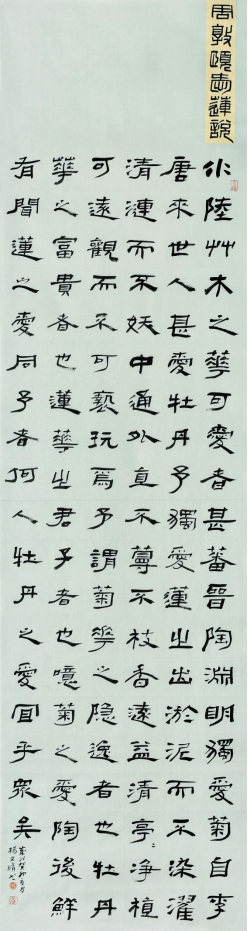 周敦頤愛蓮説
水陸艸木之華可愛者甚蕃晉陶淵明獨愛菊自李
唐來世人甚愛牡丹予獨愛蓮之出淤泥而不染濯
清漣而不妖中通外直不蔓不枝香遠益清亭〻淨植
可遠觀而不可褻玩焉予謂菊華之隐逸者也牡丹
華之富貴者也蓮華之君子者也噫菊之愛陶後鮮
有聞蓮之愛同予者何人牡丹之愛宜乎眾矣
歲次癸卯